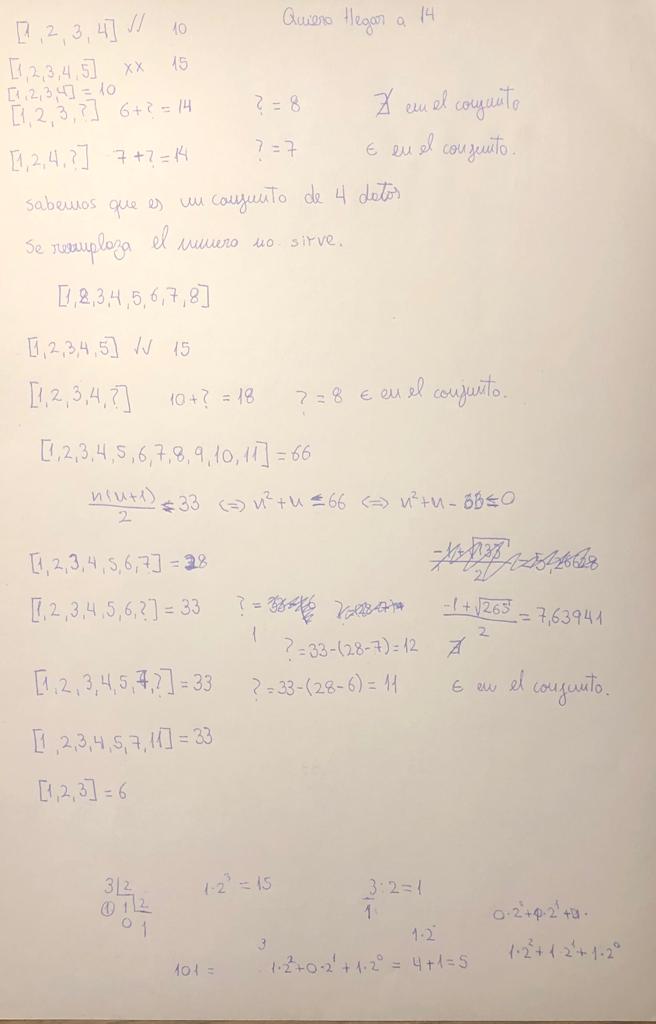 Quiero llegar a 14
[1,2,3,4] √√ 10
[1,2,3,4,5] xx 15
[1,2,3,4] = 10
[1,2,3,?] 6+? = 14 ? = 8 ∄ en el conjunto
[1,2,4,?] 7+? = 14 ? = 7 ∈ en el conjunto.
Sabemos que es un conjunto de 4 datos
Se remplaza el numero no sirve.
[1,2,3,4,5,6,7,8]
[1,2,3,4,5] √√ 15
[1,2,3,4,?] 10+? = 18 ? = 8 ∈ en el conjunto.
[1,2,3,4,5,6,7,8,9,10,11] = 66
n(n+1)/2 ≤ 33 <=> n²+n ≤ 66 <=> n²+n - 66 ≤ 0
[1,2,3,4,5,6,7] = 28
[1,2,3,4,5,6,?] = 33 (-1+√265)/2 = 7,63941
? = 33-(28-7) = 12 ∄
[1,2,3,4,5,7,?] = 33 ? = 33-(28-6) = 11 ∈ en el conjunto.
[1,2,3,4,5,7,11] = 33
[1,2,3] = 6
3 2 1·2³ = 15 3:2=1
① 1 2 1
0 1 0·2²+0·2¹+
1·2
3 1·2²+1·2¹+1·2⁰
101 = 1·2²+0·2¹+1·2⁰ = 4+1=5